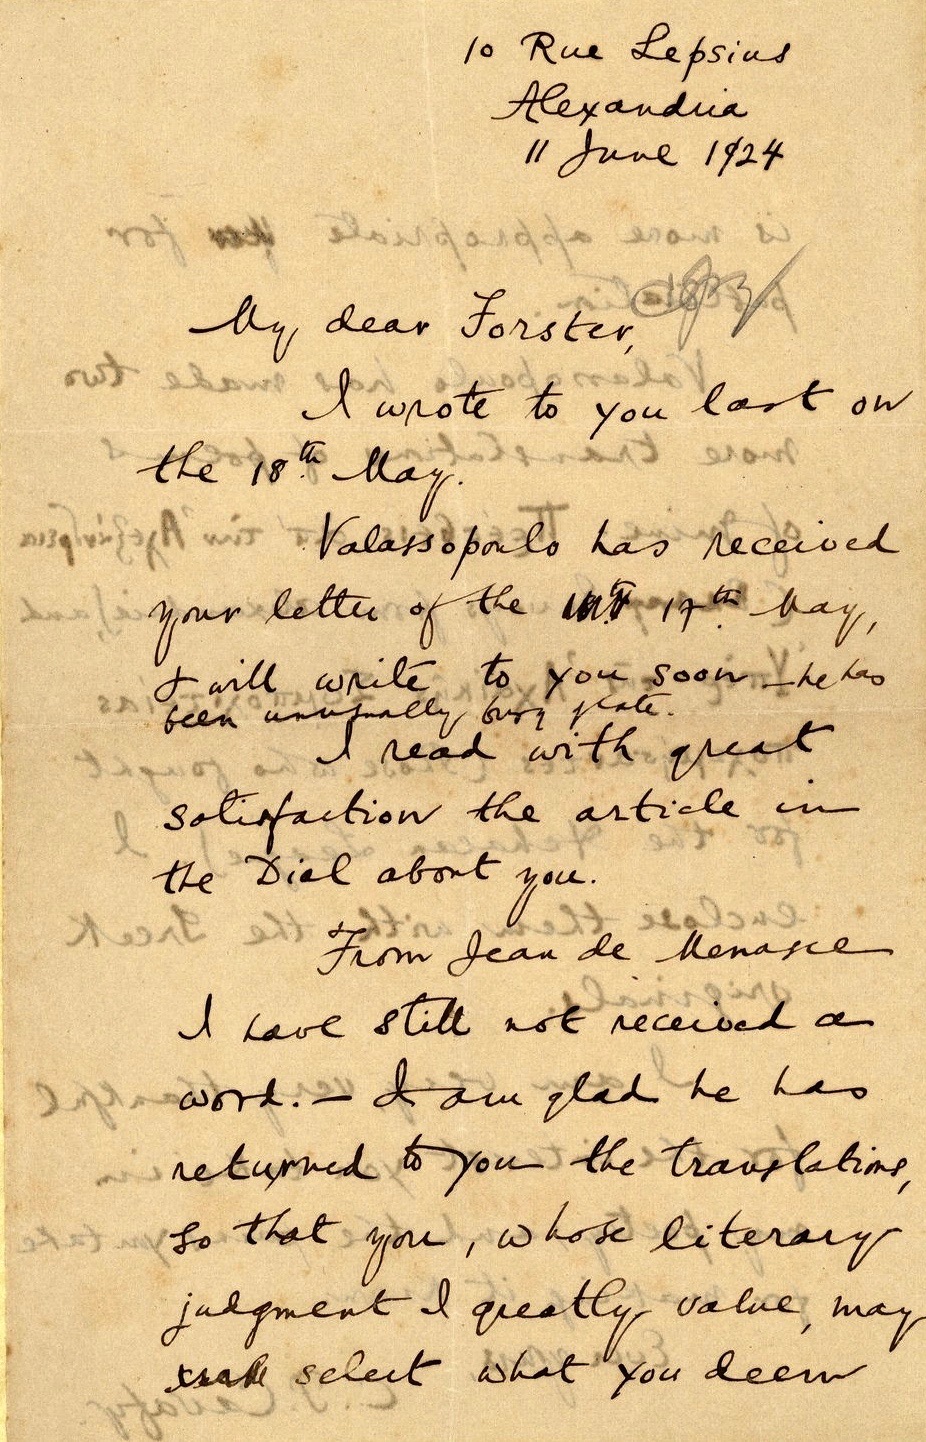 10 Rue Lepsius
Alexandria
11 June 1924
My dear Forster,
I wrote to you last on
the 18th May.
Valassopoulo has received
your letter of the 17th May,
& will write to you soon – he has
been unusually busy of late.
I read with great
satisfaction the article in
the Dial about you.
From Jean de Menasce
I have still not received a
word. – I am glad he has
returned to you the translations,
so that you, whose literary
judgment I greatly value, may
select what you deem